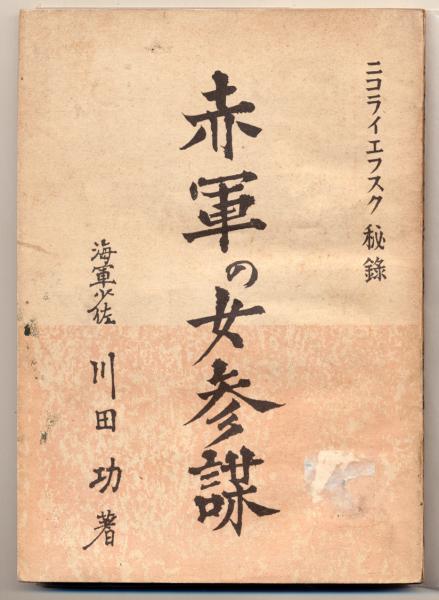 ニコライエフスク秘錄
赤軍の女参謀
海軍少佐 川田功著